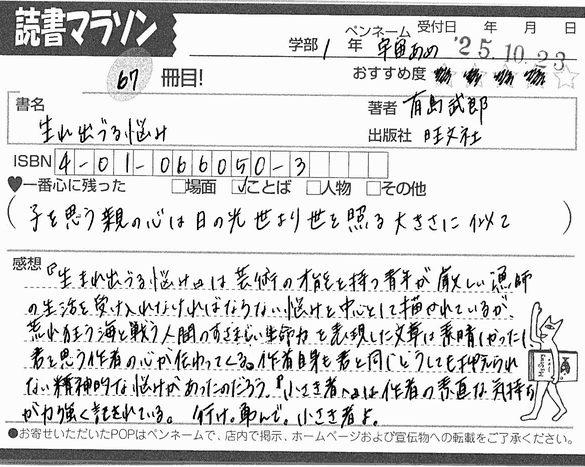 読書マラソン
学部 1 年 ペンネーム 宇宙あめ 受付日 年 月 日
'25.10.23
67 冊目!
おすすめ度
書名
生れ出づる悩み
著者 有島武郎
出版社 旺文社
ISBN 4-01-066050-3
♥一番心に残った □場面 ☑ことば □人物 □その他
(子を思う親の心は日の光世より世を照る大きさに似て)
感想
『生まれ出づる悩み』は芸術の才能を持つ青年が厳しい漁師
の生活を受け入れなければならない悩みを中心として描かれているが、
荒れ狂う海と戦う人間のすさまじい生命力を表現した文章は素晴しかった!
君を思う作者の心が伝わってくる。作者自身も君と同じどうしても抑えられ
ない精神的な悩みがあったのだろう。『小さき者へ』は作者の素直な気持ち
が力強く記されている。 行け。勇んで。小さき者よ。
●お寄せいただいたPOPはペンネームで、店内で掲示、ホームページおよび宣伝物への転載をご了承ください。